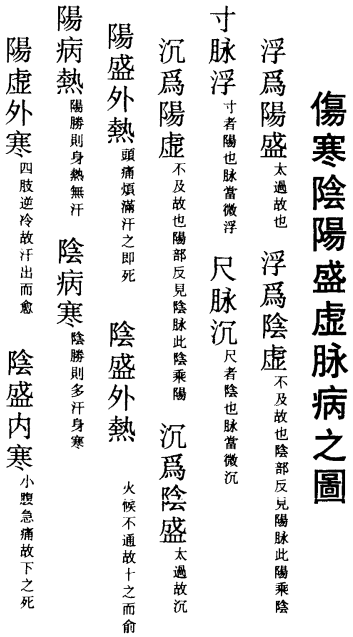 傷寒陰陽盛虛脉病之圖
浮爲陽盛太過故也 浮爲陰虛不及故也陰部反見陽脉此陽乘陰
寸脉浮寸者陽也脉當微浮 尺脉沉尺者陰也脉當微沉
沉爲陽虛不及故也陽部反見陰脉此陰乘陽 沉爲陰盛太過故沉
陽盛外熱頭痛煩滿汗之即死 陰盛外熱火候不通故十之而俞
陽病熱陽勝則身熱無汗 陰病寒陰勝則多汗身寒
陽虛外寒四肢逆冷故汗出而愈 陰盛内寒小腹急痛故下之死